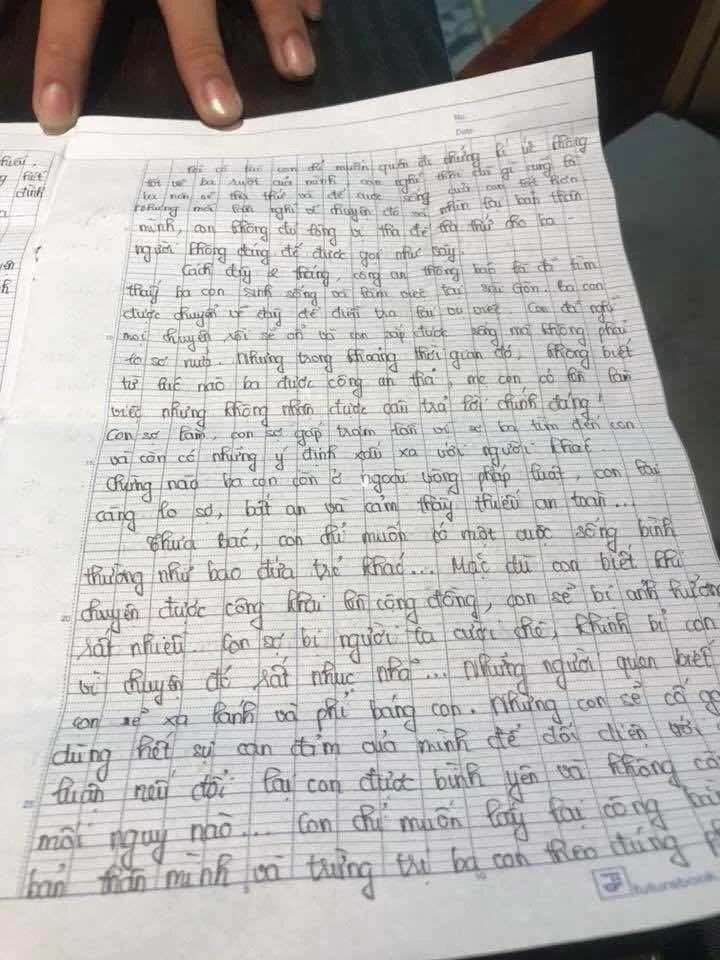 hiểu.
hiết
đình
No.
Date
Đôi có lúc con đã muốn quên đi những kí ức không
tốt về ba suốt đời mình. con nghĩ
ba nên sẽ tha thứ và để cuộc sống
nhưng mỗi lần nghĩ về chuyện đó và nhìn lại bản thân
mình, con không đủ lòng vị tha để tha thứ cho ba -
người không đáng để được gọi như vậy.
Cách đây 2 tháng, công an thông báo là đã tìm
thấy ba con sinh sống và làm việc tại Sài Gòn. ba con
được chuyển về đây để điều tra lại vụ việc. Con đã nghĩ
mọi chuyện rồi sẽ ổn và con sắp được sống mà không phải
lo sợ nữa. Nhưng trong khoảng thời gian đó, không biết
từ lúc nào ba được công an thả, mẹ con có lên làm
việc nhưng không nhận được câu trả lời chính đáng!
Con sợ lắm, con sợ gấp trăm lần vì sợ ba tìm đến con
và còn có những ý định xấu xa với người khác.
Chừng nào ba con còn ở ngoài vòng pháp luật, con lại
càng lo sợ, bất an và cảm thấy thiếu an toàn...
Thưa bác, con chỉ muốn có một cuộc sống bình
thường như bao đứa trẻ khác... Mặc dù con biết khi
chuyện được công khai lên cộng đồng, con sẽ bị ảnh hưởng
20
rất nhiều. Con sợ bị người ta cười chê, khinh bỉ con
vì chuyện đó rất nhục nhã... những người quen biết
con sẽ xa lánh và phỉ báng con. Nhưng con sẽ cố gắ
dùng hết sự can đảm của mình để đối diện với
luận nếu đổi lại con được bình yên và không có
25
mối nguy nào... Con chỉ muốn lấy lại công bằ
bản thân mình và trừng trị ba con theo đúng p
futurebook